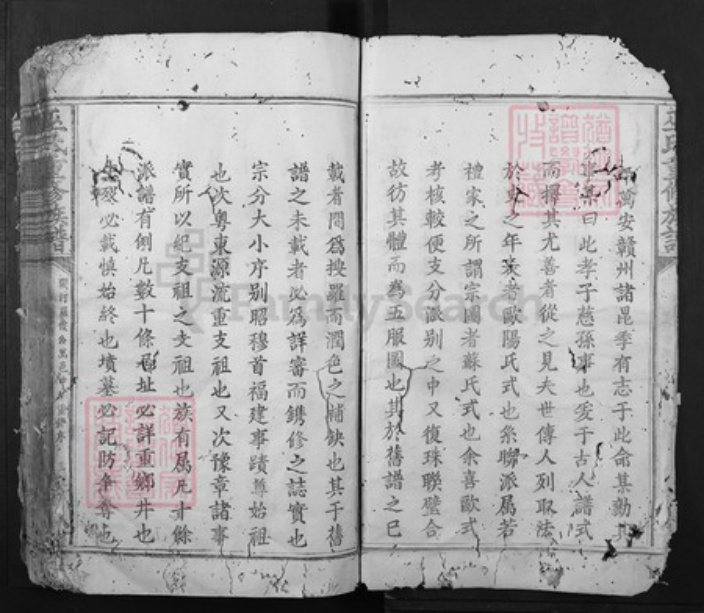 萬安贛州諸昆季有志于此命某勷其
事某曰此孝子慈孫事也爰于古人譜式
而擇其尤善者從之見夫世傳人列取法
於史之年表者歐陽氏式也系聯派属若
禮家之所謂宗圖者蘇氏式也余喜歐式
考核較便支分派别之中又復珠聯璧合
故彷其體而為五服圖也其於舊譜之已
載者間為搜羅而潤色之補缺也其于舊
譜之未載者必為詳審而鐫修之誌實也
宗分大小序别昭穆首福建事蹟尊始祖
也次粤東源流重支祖也又次豫章諸事
實所以紀支祖之支祖也族有属凡十餘
派譜有例凡數十條居址必詳重鄉井也
生殁必載慎始終也墳墓必記防争奪也
巫氏重修族譜
FamilySearch